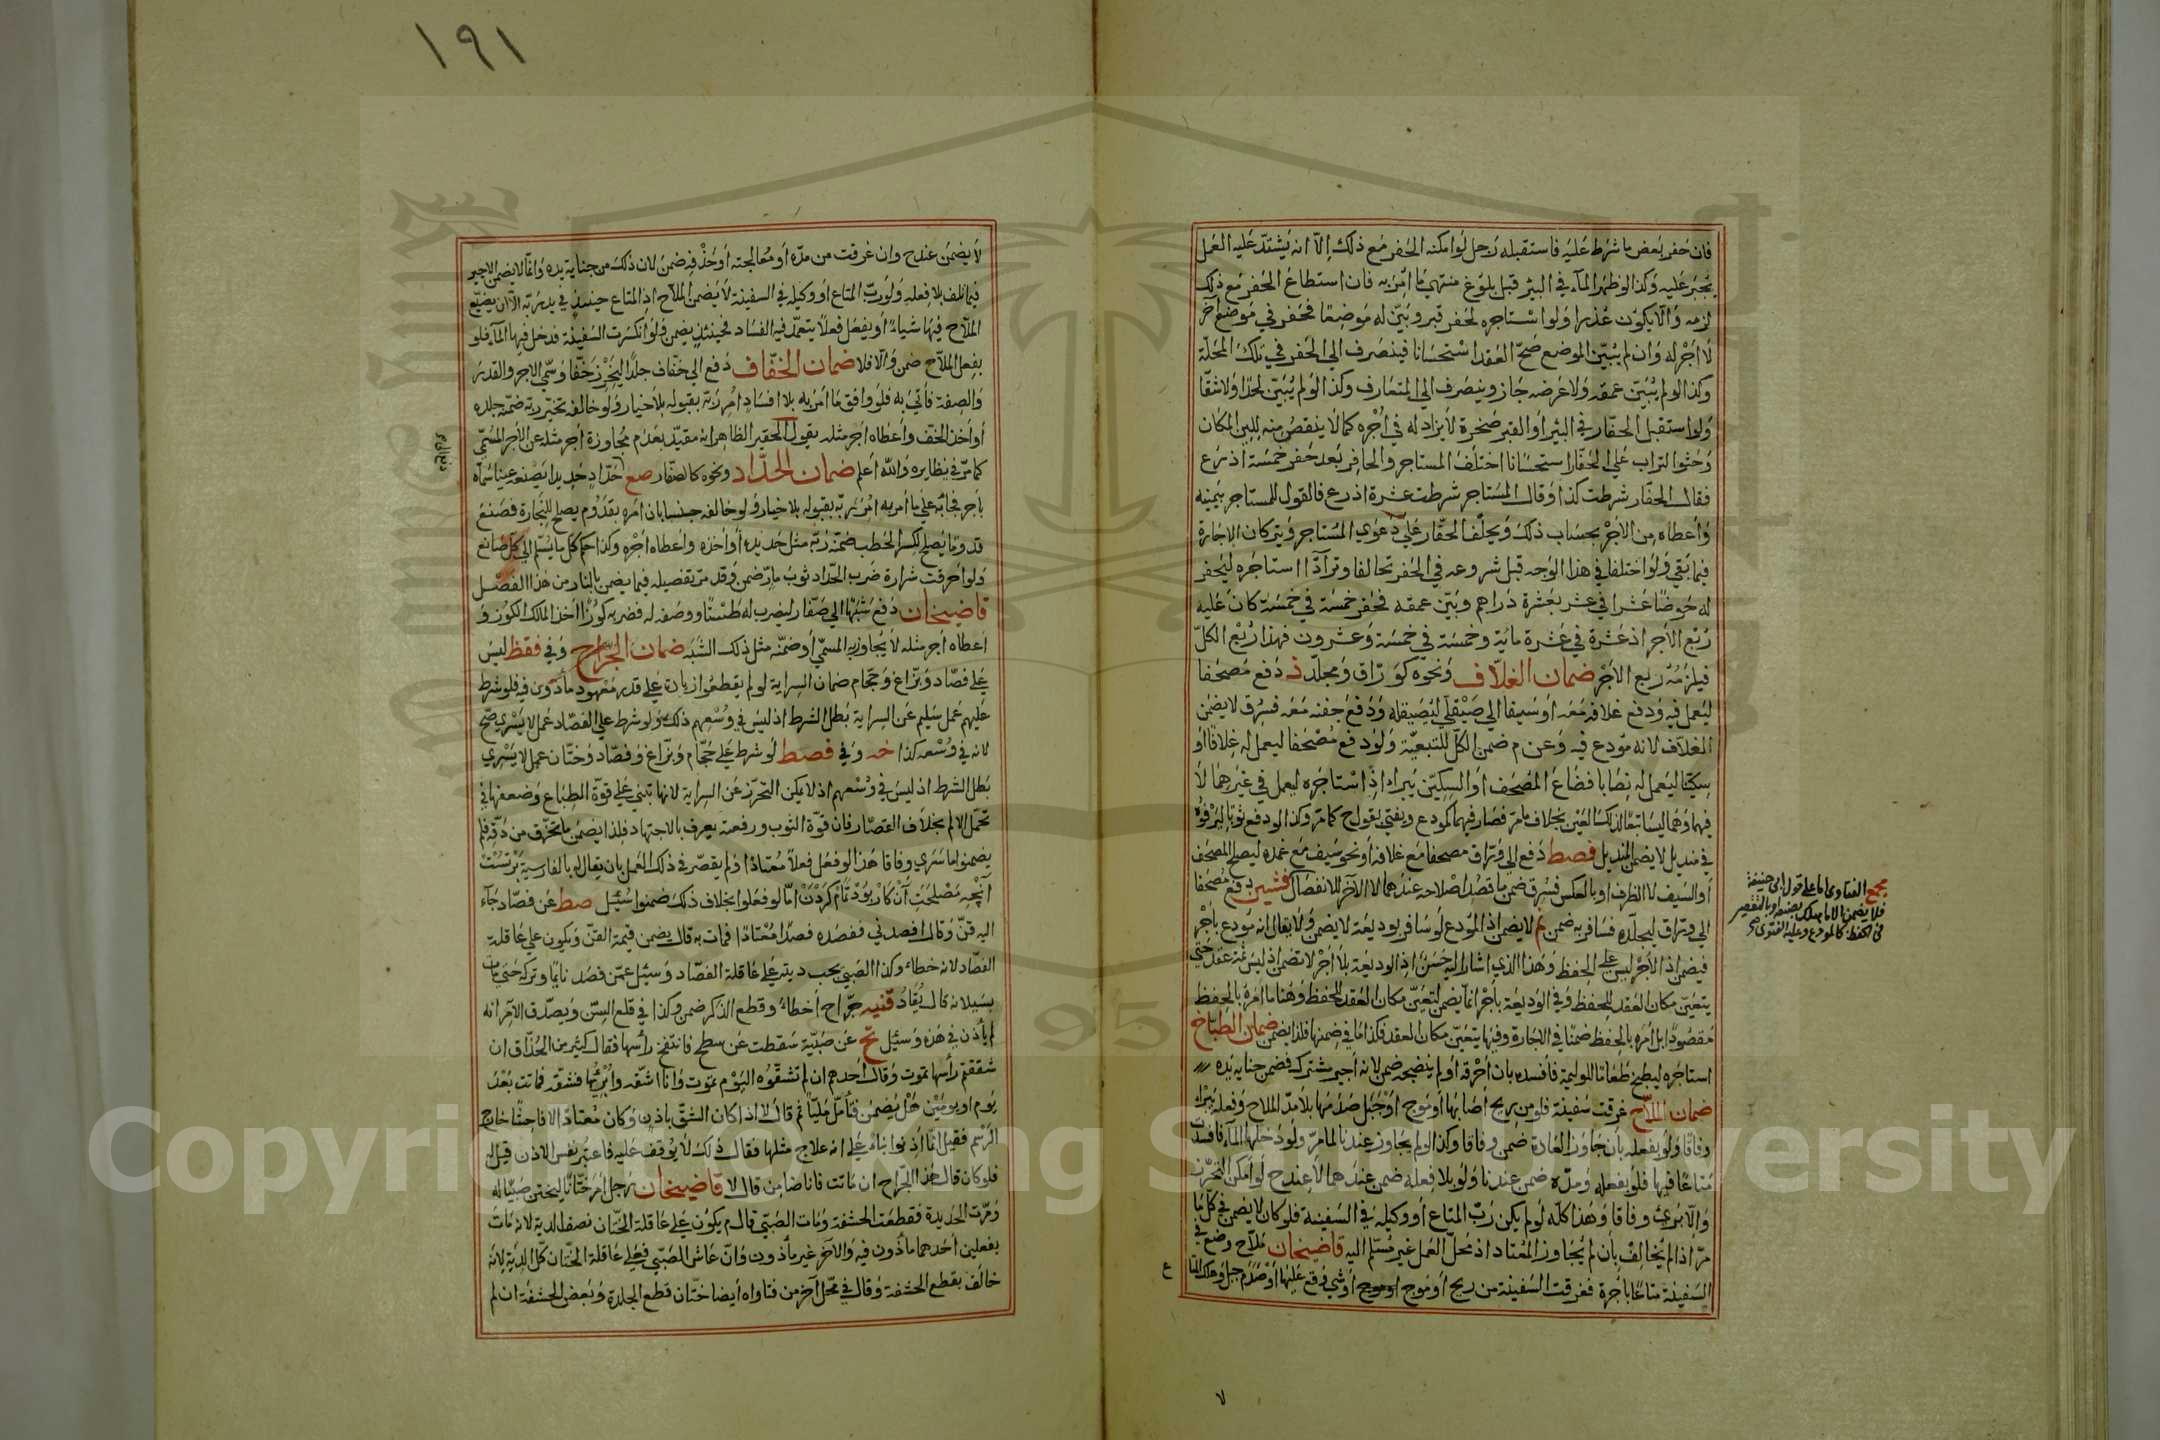 ١٩١
فان حفر بعض ما شرط عليه فاستقبله لاجل لو امكنه الحفر مع ذلك الا انه يشتد عليه العمل
يجبر عليه وكذا لو ظهر المآء في البئر قبل بلوغ منتهي ما امر به فان استطاع الحفر مع ذلك
لزمه والا يكون عذرا ولو استاجره لحفر قبر وبيّن له موضعا فحفر في موضع آخر
لا اجر له وان لم يبيّن الموضع صح العقد استحسانا فينصرف الي الحفر في تلك المحلة
وكذا لو لم يبيّن عمقه ولا عرضه جاز وينصرف الي المتعارف وكذا لو لم يبيّن لحدا ولا شقا
ولو استقبل الحفار في البئر او القبر صخرة لا يزاد له في اجره كما لا ينقص منه للين المكان
وحثو التراب علي الحفار استحسانا اختلف المستاجر والحافر بعد حفر خمسة اذرع
فقال الحفار شرطت كذا وقال المستاجر شرطت عشرة اذرع فالقول للمستاجر بيمينه
واعطاه من الاجر بحساب ذلك ويحلف الحفار علي دعوي المستاجر ويتركان الاجارة
فيما بقي ولو اختلفا في هذا الوجه قبل شروعه في الحفر تحالفا وترادّا استاجره ليحفر
له حوضا عشرا في عشر بعشرة دراهم وبيّن عمقه فحفر خمسة في خمسة كان عليه
ربع الاجر اذ عشرة في عشرة مائة وخمسة في خمسة وعشرون فهذا ربع الكل
فيلزمه ربع الاجر ضمان الغلّاف ونحوه كورّاق ومجلّد ذ دفع مصحفا
ليعمل فيه ودفع غلافه معه او سيفا الي صيقلي ليصيقله ودفع جفنه معه فسرق لا يضمن
الغلاف لانه مودع فيه وعن م ضمن الكل للتبعيّة ولو دفع مصحفا ليعمل له غلافا او
سكينا ليعمل له نصابا فضاع المصحف او السكين يبرا اذ استاجره ليعمل في غيرهما لا
فيهما وهما ليسا تبعا لذلك العين بخلاف ما مر فصار فيهما كمودع ويفتي بقول ح كما مر وكذا لو دفع ثوبا ليرفوه
في منديل لا يضمن المنديل فصط دفع الي ورّاق مصحفا مع غلافه او نحو سيف مع غمده ليصلح المصحف
او السيف لا الظرف او بالعكس فسرق ضمن ما قصد اصلاحه عندهما لا الآخر للانفصال فشين دفع مصحفا
الي ورّاق ليجلّده فسافر به ضمن لا يضمن اذ المودع لو سافر بوديعة لا يضمن ولا يقال انه مودع باجر
فيضمن اذ الاجر ليس علي الحفظ وهذا الذي اشار اليه حسن اذ الوديعة بلا اجر لا تضمن اذ ليس ثمة عقد حتي
يتعيّن مكان العقد للحفظ وفي الوديعة باجر انما يضمن لتعيّن مكان العقد للحفظ وهنا ما امره بالحفظ
مقصودًا بل امره بالحفظ ضمنا في الاجارة وفيها يتعيّن مكان العقد فكذا ما في ضمنها فلذا يضمن ضمان الطباخ
استاجره ليطبخ طعاما للوليمة فافسده بان احرقه او لم ينضجه ضمن لانه اجير مشترك فضمن جناية يده
ضمان الملاّح غرقت سفينة فلو من ريح اصابها او موج او جبل صدمها بلا مدّ الملاح وفعله يبرا
وفاقا ولو بفعله بان جاوز العادة ضمن وفاقا وكذا لو لم يجاوز عندنا لما مر ولو دخلها المآء فافسد
متاعًا فيها فلو بفعله ومدّه ضمن عندنا ولو بلا فعله ضمن عندهما لا عند ح لو امكن التحرز
والا برئ وفاقا وهذا كله لو لم يكن رب المتاع او وكيله في السفينة فلو كان لا يضمن في كل ما
مر اذا لم يخالف بان لم يجاوز المعتاد اذ محل العمل غير مسلّم اليه قاضيخان ملاح وضع في
السفينة متاعا باجرة فغرقت السفينة من ريح او موج او شئ وقع عليها او صدم جبل
مجمع الفتاوى اما علي قول ابي حنيفة
في الحفظ كالمودع وعليه الفتوى
لا يضمن عند ح وان غرقت من مدّه او معالجته او حذفه ضمن لان ذلك من جناية يده وانما لا يضمن الاجير
فيما تلف بلا فعله ولو رب المتاع او وكيله في السفينة لا يضمن الملاح اذ المتاع حينئذ في يد ربه الا ان يضيّع
الملاح فيها شيأ او يفعل فعلا يتعمد فيه الفساد فحينئذ يضمن ولو انكسرت السفينة فدخل فيها المآء فلو
بفعل الملاح ضمن والا فلا ضمان الخفّاف دفع الي خفاف جلدا ليخرز خفّا وسمّي الاجر والقدر
والصفة فاتي به فلو وافق ما امر به بلا افساد امر ربه بقبوله بلا خيار ولو خالفه تخير ربه ضمنه جلده
او اخذ الخف واعطاه اجر مثله يقول الحقير الظاهر انه مقيّد بعدم مجاوزة اجر مثله عن الاجر المسمّي
كما مر في نظايره والله اعلم ضمان الحدّاد ونحوه كالصفار صع حدّاد حديدا ليصنعه عينا سماه
باجر فجاء به علي ما امر به امر ربه بقبوله بلا خيار ولو خالفه جنسا بان امره بقدوم يصلح للنجارة فصنع
قدوما يصلح لكسر الحطب ضمنه ربه مثل حديده او اخذه واعطاه اجره وكذا حكم كل ما يسلم الي كل صانع
ولو احرقت شرارة ضرب الحدّاد ثوب مارّ ضمن وقد مر تفصيله فيما يضمن بالنار من هذا الفصل
قاضيخان دفع شبها الي صفار ليضرب له طستا ووصفه له فضربه كوزا اخذ المالك الكوز و
اعطاه اجر مثله لا يجاوز به المسمّي او ضمنه مثل ذلك الشبه ضمان الجرّاح وفي فقظ ليس
علي فصّاد وبزّاغ وحجام ضمان السراية لو لم يقطعوا زيادة علي قدر معهود ماذون فيه فلو شرط
عليهم عمل سليم عن السراية بطل الشرط اذ ليس في وسعهم ذلك ولو شرط علي القصار عملا لا يسري صح
لانه في وسعه كذا خه وفي فصط لو شرط علي حجّام وبزّاغ وفصّاد وختّان عمل لا يسري
بطل الشرط اذ ليس في وسعهم اذ لا يمكن التحرز عن السراية لانها تبتني علي قوة الطباع وضعفها في
تحمل الالم بخلاف القصّار فان قوة الثوب ورقته يعرف بالاجتهاد فلذا يضمن ما تخرق من دقه فلم
يضمنوا ما سري وفاقا هذا لو فعل فعلا معتادا ولم يقصر في ذلك العمل بان يقال له بالفارسية
انچه مصلحت ان كار بود تمام كردن اما لو فعلوا بخلاف ذلك ضمنوا سئل صط عن فصّاد جآء
اليه قنّ وقال افصدني ففصده فصدا معتادا فمات به قال يضمن قيمة القنّ ويكون علي عاقلة
الفصاد لانه خطاء وكذا الصبي يجب ديته علي عاقلة الفصّاد وسئل عمن فصد نايما وتركه حتي مات
بسيلانه قال يقاد قنيه جرّاح اخطاء وقطع الذكر ضمن وكذا في قلع السنّ ويصدق الآمر انه
لم ياذن في هذه وسئل نج عن صبيّة سقطت عن سطح فانتفخ راسها فقال كثير من الحذّاق ان
شققتم راسها تموت وقال احدهم ان لم تشقوه اليوم تموت وانا اشقه وابرئها فشقه فماتت بعد
يوم او يومين هل يضمن فتامّل مليّا ثم قال لا اذا كان الشق باذن وكان معتادًا لا فاحشًا خارج
الرسم فقيل انما اذنوا بناء علي انه علاج مثلها فقال ذلك لا يوقف عليه فاعتبر نفس الاذن قيل له
فلو كان قال هذا الجراح ان ماتت فانا ضامن قال لا قاضيخان رجل امر ختّانا ليختن صبيّا له
ومرّت الحديدة فقطعت الحشفة ومات الصبي قال م يكون علي عاقلة الختّان نصف الدية لانه مات
بفعلين احدهما ماذون فيه والآخر غير ماذون وان عاش الصبّي فعلي عاقلة الختّان كل الدية لانه
خالف بقطع الحشفة وقال في محل آخر من فتاواه ايضا ختّان قطع الجلدة وبعض الحشفة ان لم
Copyright © King Saud University